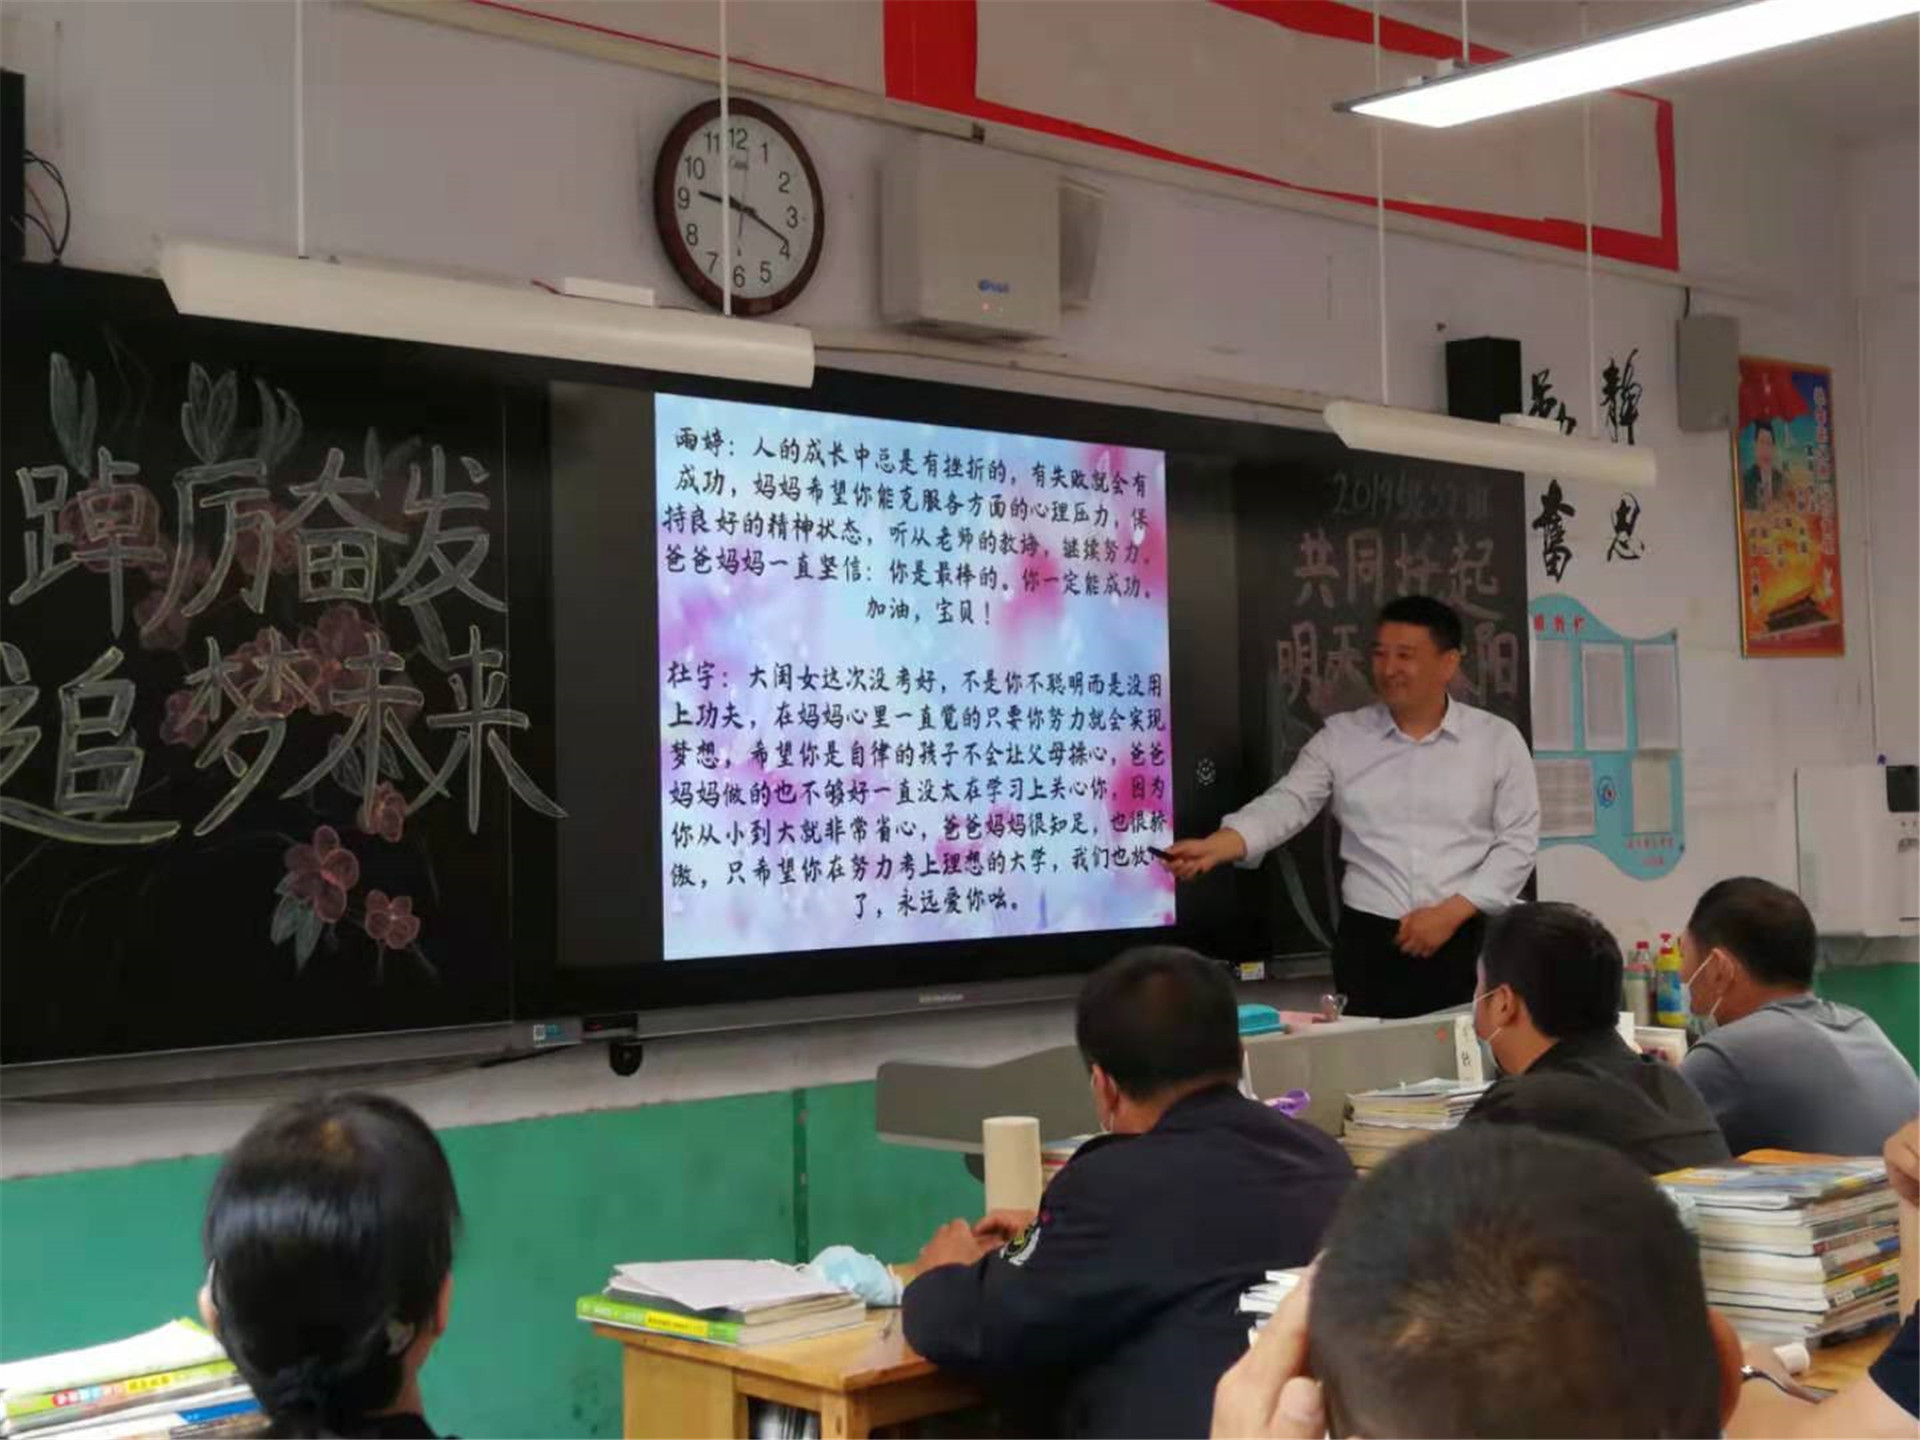 12
11
1
10
2
9
3
8
4
7
5
6
踔厉奋发
追梦未来
雨婷：人的成长中总是有挫折的，有失败就会有
成功，妈妈希望你能克服各方面的心理压力，保
持良好的精神状态，听从老师的教诲，继续努力。
爸爸妈妈一直坚信：你是最棒的。你一定能成功。
加油，宝贝！
杜宇：大闺女这次没考好，不是你不聪明而是没用
上功夫，在妈妈心里一直觉的只要你努力就会实现
梦想，希望你是自律的孩子不会让父母操心，爸爸
妈妈做的也不够好一直没太在学习上关心你，因为
你从小到大就非常省心，爸爸妈妈很知足，也很骄
傲，只希望你在努力考上理想的大学，我们也放
了，永远爱你呦。
共同托起
明天 阳
静
思
奋